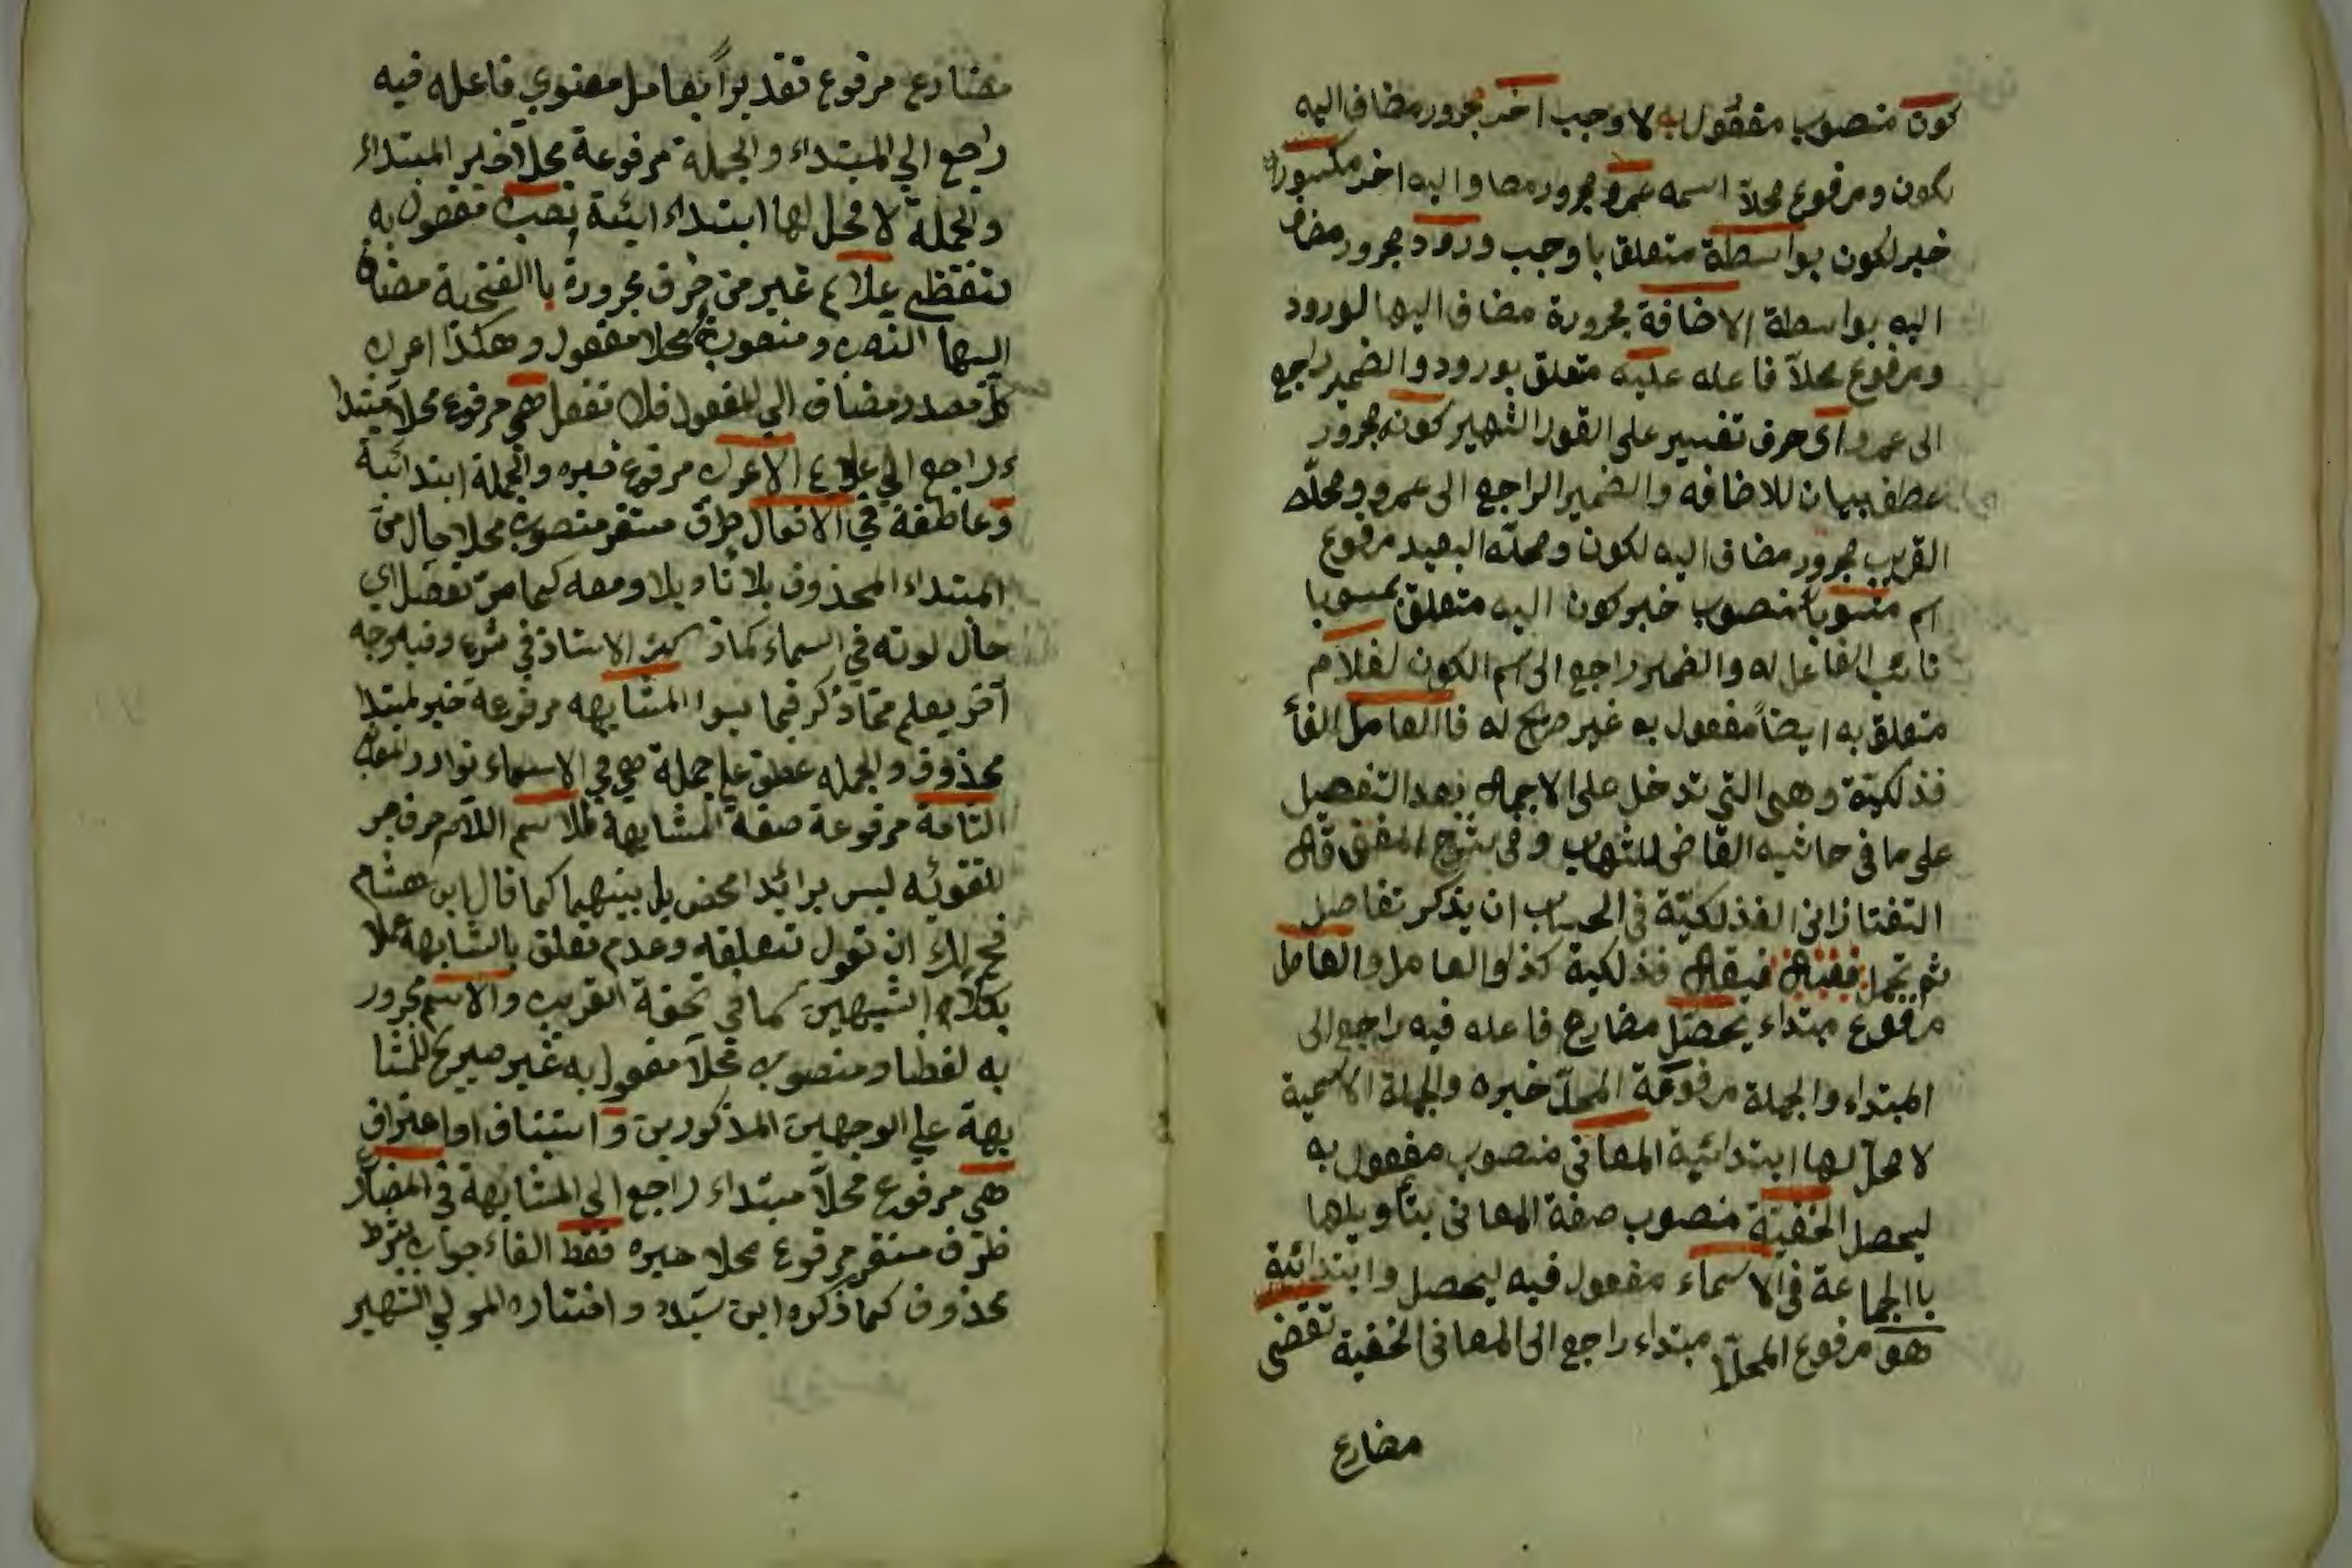 كون منصوب مفعول به لاوجب اخر مجرور مضاف اليه
لكون ومرفوع محلاً اسمه عمرو مجرور مضاف اليه اخر مكسور
خبر لكون بواسطة متعلق باوجب ورود مجرور مضاف
اليه بواسطة الاضافة مجرورة مضاف اليها لورود
ومرفوع محلاً فاعله عليه متعلق بورود والضمير راجع
الى عمرو اى حرف تفسير على القول الشهير كونه مجرور
عطف بيان للاضافه والضمير الراجع الى عمرو ومحله
القريب مجرور مضاف اليه لكون ومحله البعيد مرفوع
اسم منسوباً منصوب خبر كون اليه متعلق بمنسوبا
نائب الفاعل له والضمير راجع الى اسم الكون لغلام
متعلق به ايضاً مفعول به غير صريح له فاالعامل الفأ
فذلكيّة وهى التى تدخل على الاجمال بعد التفصيل
على ما فى حاشيه القاضى للشهاب وفى شرح المفتق قال
التفتازانى الفذلكيّة فى الحساب ان يذكر تفاصيل
ثم تجمل فيقال فذلكية كذا والعامل والعامل
مرفوع مبتداء يحصل مضارع فاعله فيه راجع الى
المبتداء والجملة مرفوعة المحلّ خبره والجملة الاسمية
لا محلّ لها ابتدائية المعانى منصوب مفعول به
ليحصل الخفيّة منصوب صفة المعانى بتأويلها
باالجماعة فى الاسماء مفعول فيه ليحصل وابتدائية
هو مرفوع المحلّ مبتداء راجع الى المعانى الخفية تقضى
مضارع
مضارع مرفوع تقديراً بعامل معنوي فاعله فيه
راجع الي المبتداء والجملة مرفوعة محلاً خبر المبتداء
والجملة لا محل لها ابتداء ايئة نصب مفعول به
لتقتضي علائم غير من حرف مجرورة باالفتحية مضاف
اليها النصب ومنصوبة محلا مفعول وهكذا اعرب
كل مصدر مضاف الي المفعول فلا تغفل هي مرفوع محلا مبتدا
ء راجع الي علائم الاعراب مرفوع خبره والجملة ابتدائية
وعاطفة في الافعال ظرف مستقر منصوب محلا حال من
المبتداء المحذوف بلا تاويلا ومعه كما مرّ تفصل اي
حال لونه في السماء كماذكره الاستاذ في شرء وفيه وجه
آخر يعلم ممّا ذكر فيما سوا المشابهه مرفوعة خبر لمبتدا
محذوف والجمله عطق علي جملة هي في الاسماء توارد
التامة مرفوعة صفة المشابهة للاسم اللام حرف جر
للتقوئيه ليس برائدا محض بل بينهما كما قال ابن هشام
فح لك ان تقول تتعلقه وعدم تعلق بالشابهة عملا
بكلام الشبهين كما في تحفة القريب والاسم مجرور
به لفظا ومنصوب محلاً مفعول به غير صريح للمشا
بهة علي الوجهين المذكورين وا استيناف اواعتراف
هي مرفوع محلاً مبتداء راجع الي المشابهة في المضار
ظرف مستقر مرفوع محلا خبره فقط الفاء جواب شرط
محذوف كما ذكره ابن سيّد و اختاره المولي الشهير